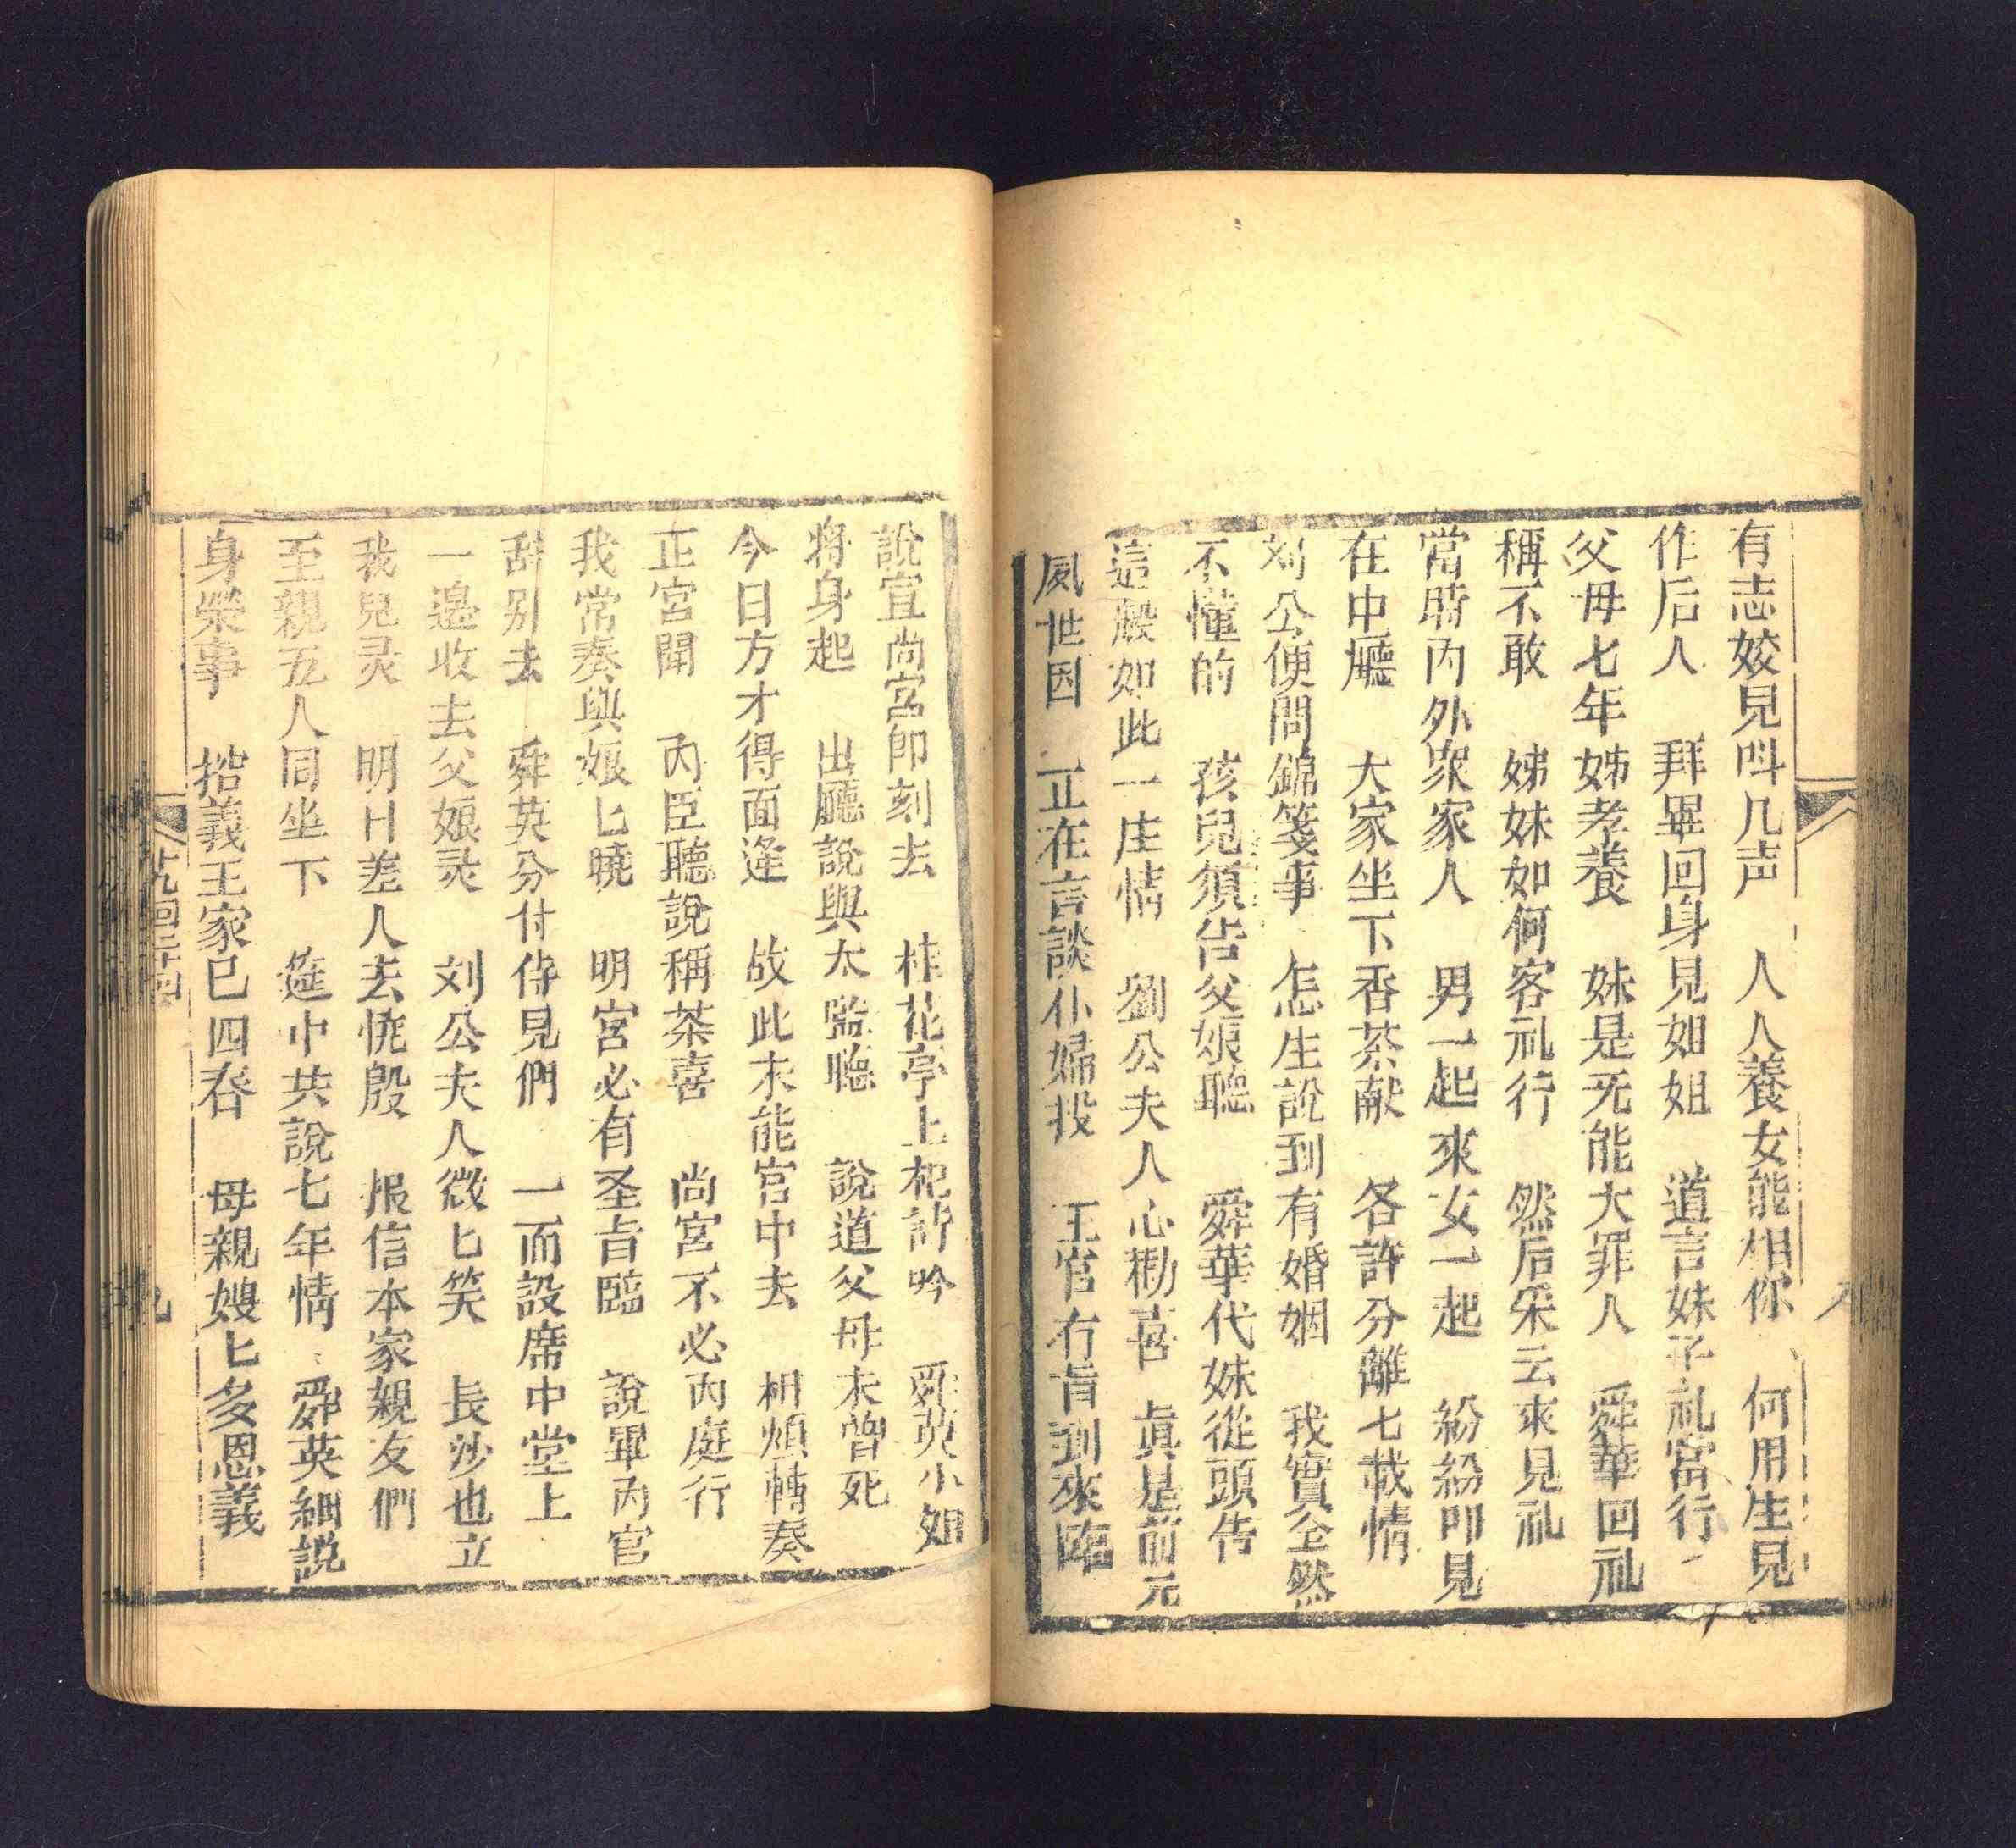 有志姣見呌几声　人人養女能相你　何用生見
作后人　拜畢回身見姐姐　道言妹子礼宮行
父母七年姊孝養　妹是无能大罪人　舜華回礼
稱不敢　姊妹如何客礼行　然后采云來見礼
當時內外衆家人　男一起來女一起　紛紛叩見
在中廳　大家坐下香茶献　各許分離七載情
刘公便問錦箋事　怎生說到有婚姻　我實全然
不懂的　孩兒須告父娘聽　舜華代妹從頭告
這般如此一庄情　劉公夫人心勸喜　眞是前元
夙世因　正在言談仆婦投　王官有旨到來臨
說宣尚宮卽刻去　桂花亭上把詩吟　舜英小姐
將身起　出廳說與太監聽　說道父母未曾死
今日方才得面逢　故此未能官中去　相煩轉奏
正宮聞　內臣聽說稱茶喜　尚宮不必內庭行
我常奏與娘匕曉　明宮必有圣旨臨　說畢內官
辞别去　舜英分付侍見們　一而設席中堂上
一邉收去父娘灵　刘公夫人微匕笑　長沙也立
我兒灵　明日差人去恍殷　报信本家親友們
至親五人同坐下　筵中共說七年情　舜英細說
身榮事　拾義王家已四春　母親嫂匕多恩義
九回二十四
九